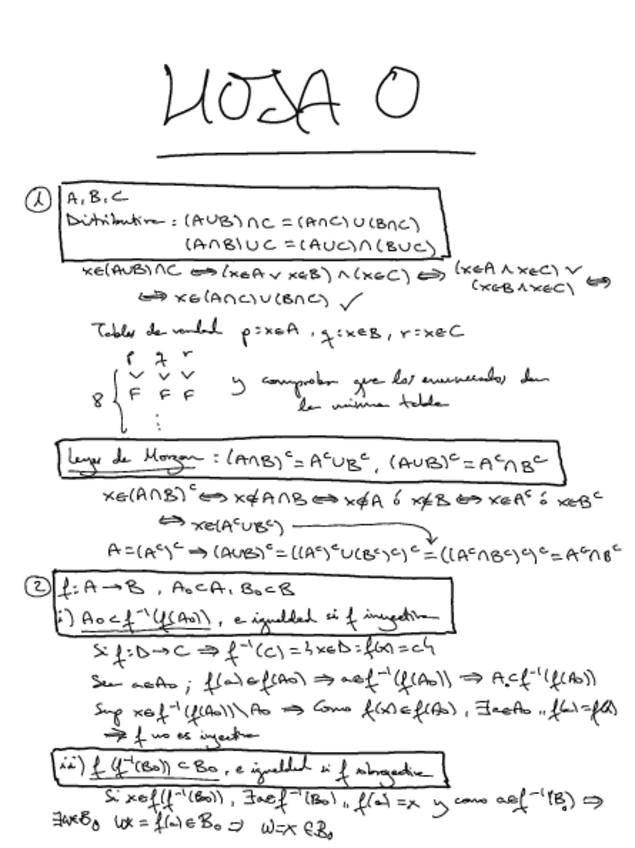 HOJA 0
1 A, B, C
Distributiva : (A∪B)∩C = (A∩C)∪(B∩C)
(A∩B)∪C = (A∪C)∩(B∪C)
x∈(A∪B)∩C ⟺ (x∈A ∨ x∈B) ∧ (x∈C) ⟺ (x∈A ∧ x∈C) ∨ (x∈B ∧ x∈C) ⟺
⟺ x∈(A∩C)∪(B∩C) ✓
Tablas de verdad p:=x∈A , q:=x∈B, r:=x∈C
p q r
V V V
8 F F F y comprobar que los enunciados dan
⋮ la misma tabla
Leyes de Morgan : (A∩B)ᶜ = Aᶜ∪Bᶜ, (A∪B)ᶜ = Aᶜ∩Bᶜ
x∈(A∩B)ᶜ ⟺ x∉A∩B ⟺ x∉A ó x∉B ⟺ x∈Aᶜ ó x∈Bᶜ
⟺ x∈(Aᶜ∪Bᶜ)
A=(Aᶜ)ᶜ → (A∪B)ᶜ = ((Aᶜ)ᶜ∪(Bᶜ)ᶜ)ᶜ = ((Aᶜ∩Bᶜ)ᶜ)ᶜ = Aᶜ∩Bᶜ
2 f: A → B , A₀⊂A, B₀⊂B
i) A₀⊂f⁻¹(f(A₀)) , e igualdad si f inyectiva
Si f: D → C ⇒ f⁻¹(C) = {x∈D : f(x) = c}
Sea a∈A₀ ; f(a)∈f(A₀) ⇒ a∈f⁻¹(f(A₀)) ⇒ A₀⊂f⁻¹(f(A₀))
Sup x∈f⁻¹(f(A₀))\A₀ ⇒ Como f(x)∈f(A₀) , ∃a∈A₀ ,, f(a)=f(x)
⇒ f no es inyectiva
ii) f(f⁻¹(B₀))⊂B₀, e igualdad si f sobreyectiva
Si x∈f(f⁻¹(B₀)) , ∃a∈f⁻¹(B₀) ,, f(a)=x y como a∈f⁻¹(B₀) ⇒
∃w∈B₀ = f(a)∈B₀ ⇒ w=x∈B₀